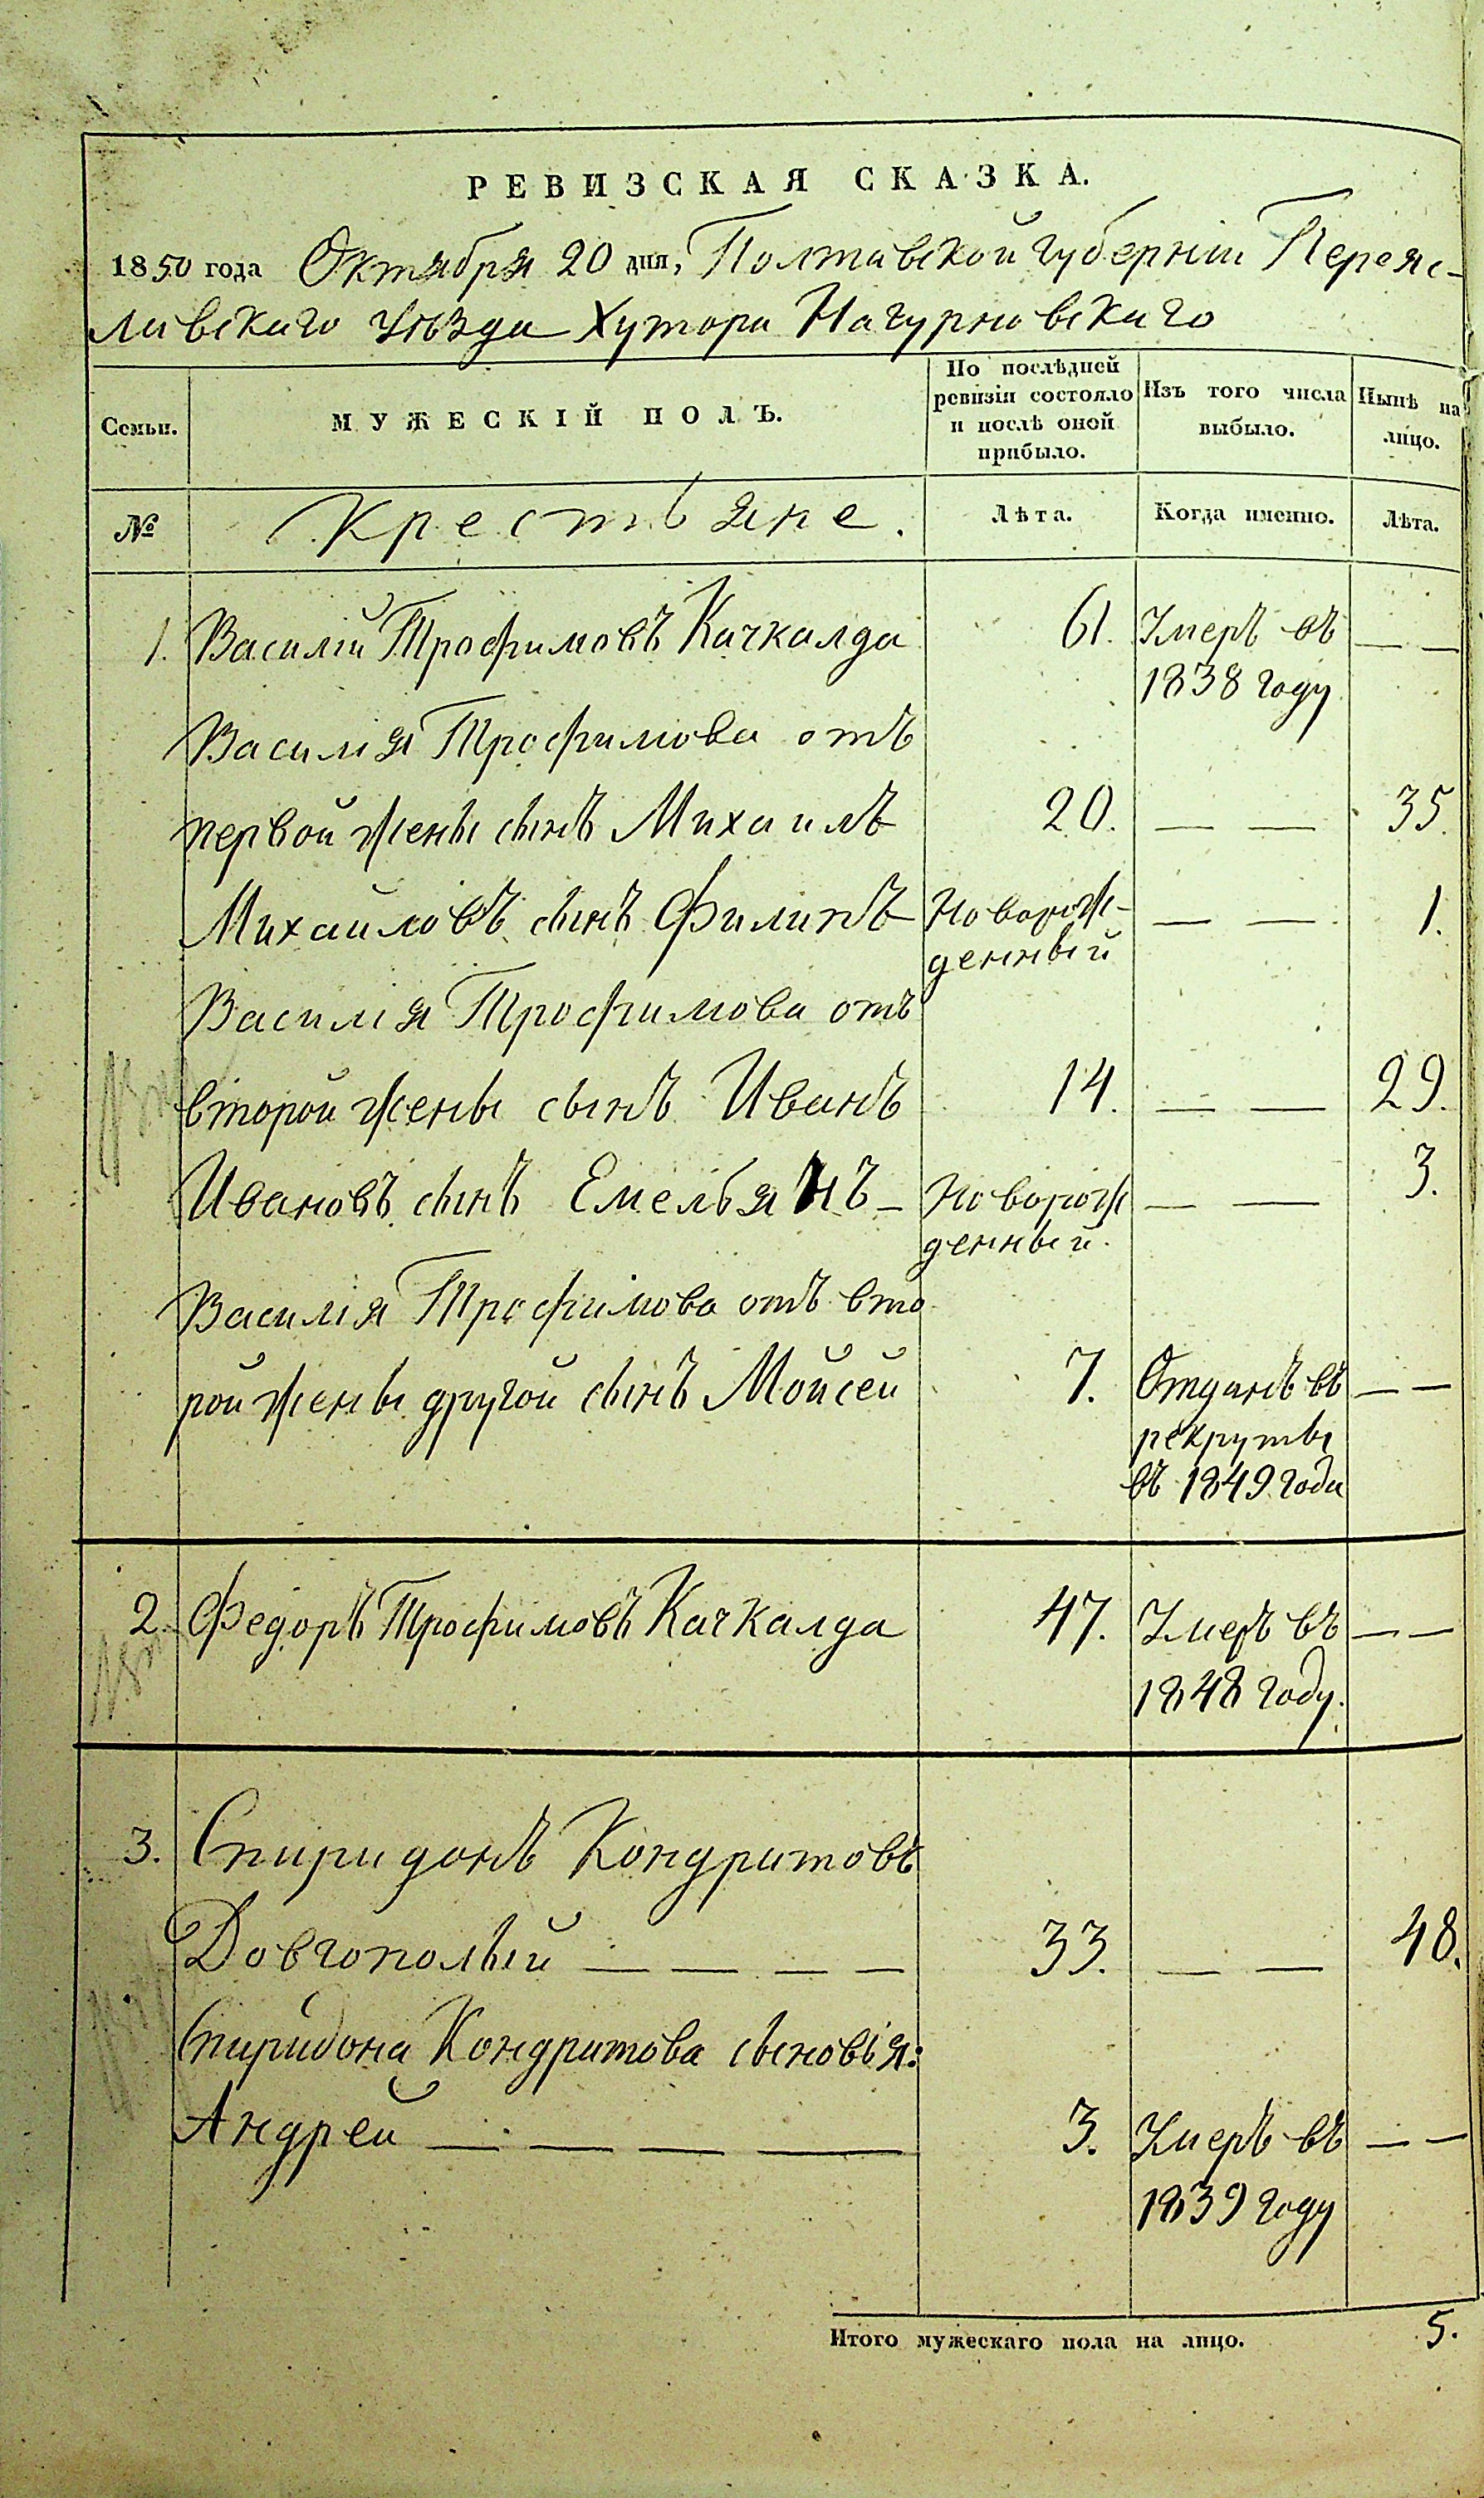 РЕВИЗСКАЯ СКАЗКА.
1850 года Октября 20 дня, Полтавской губерніи Переяс-
лавскаго уѣзда Хутора
Семьи.
МУЖЕСКІЙ ПОЛЪ.
По послѣдней
ревизіи состояло
и послѣ оной
прибыло.
Изъ того числа
выбыло.
Нынѣ на
лицо.
№
Крестьяне.
Лѣта.
Когда именно.
Лѣта.
1. Василій Трофимовъ Качкалда 61. Умеръ въ — —
1838 году
Василія Трофимова отъ
первой жены сынъ Михаилъ 20. — — 35.
Михайловъ сынъ Филипъ Новорож- — — 1.
денный
Василія Трофимова отъ
второй жены сынъ Иванъ 14. — — 29.
Ивановъ сынъ Емельянъ — Новорож — — 3.
денный.
Василія Трофимова отъ вто
рой жены другой сынъ Мойсей 7. Отданъ въ — —
рекруты
въ 1849 года
2. Федоръ Трофимовъ Качкалда 47. Умеръ въ — —
1848 году.
3. Спиридонъ Кондратовъ
Довгополый — — — — 33. — — 48.
Спиридона Кондратова сыновія:
Андрей — — — — 3. Умеръ въ — —
1839 году
Итого мужескаго пола на лицо. 5.